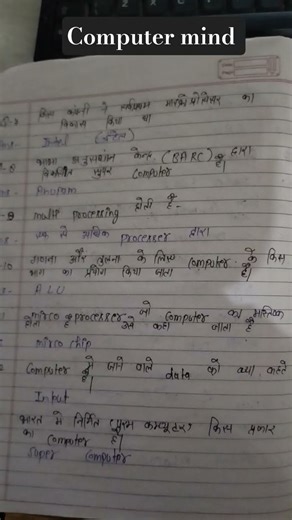 Computer mind
किस कंपनी ने सर्वप्रथम माइक्रोप्रोसेसर का
विकास किया था
Intel (इंटेल)
भाभा अनुसंधान केन्द्र (BARC) द्वारा
विकसित सुपर Computer है
Anupam
multi processing होती है -
एक से अधिक processer द्वारा
10 गणना और तुलना के लिए Computer के किस
भाग का प्रयोग किया जाता है।
ALU
mirco processer जो Computer का मस्तिष्क
होता है उसे कहा जाता है
mirco chip
Computer में जाने वाले data को क्या कहते
है।
Input
भारत में निर्मित परम कम्प्यूटर किस प्रकार
का Computer है।
Super Computer